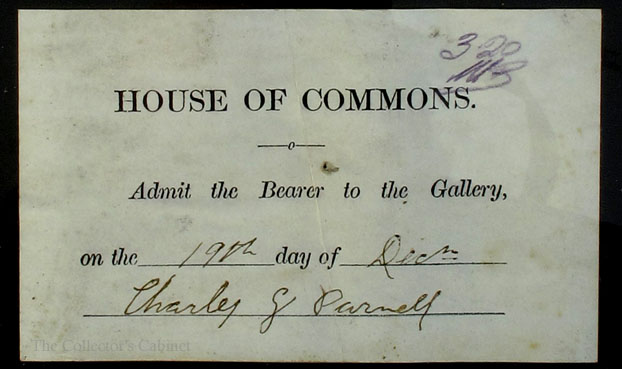 3 20
HOUSE OF COMMONS.
Admit the Bearer to the Gallery,
on the 19th day of Decm
Charles S Parnell
The Collector's Cabinet